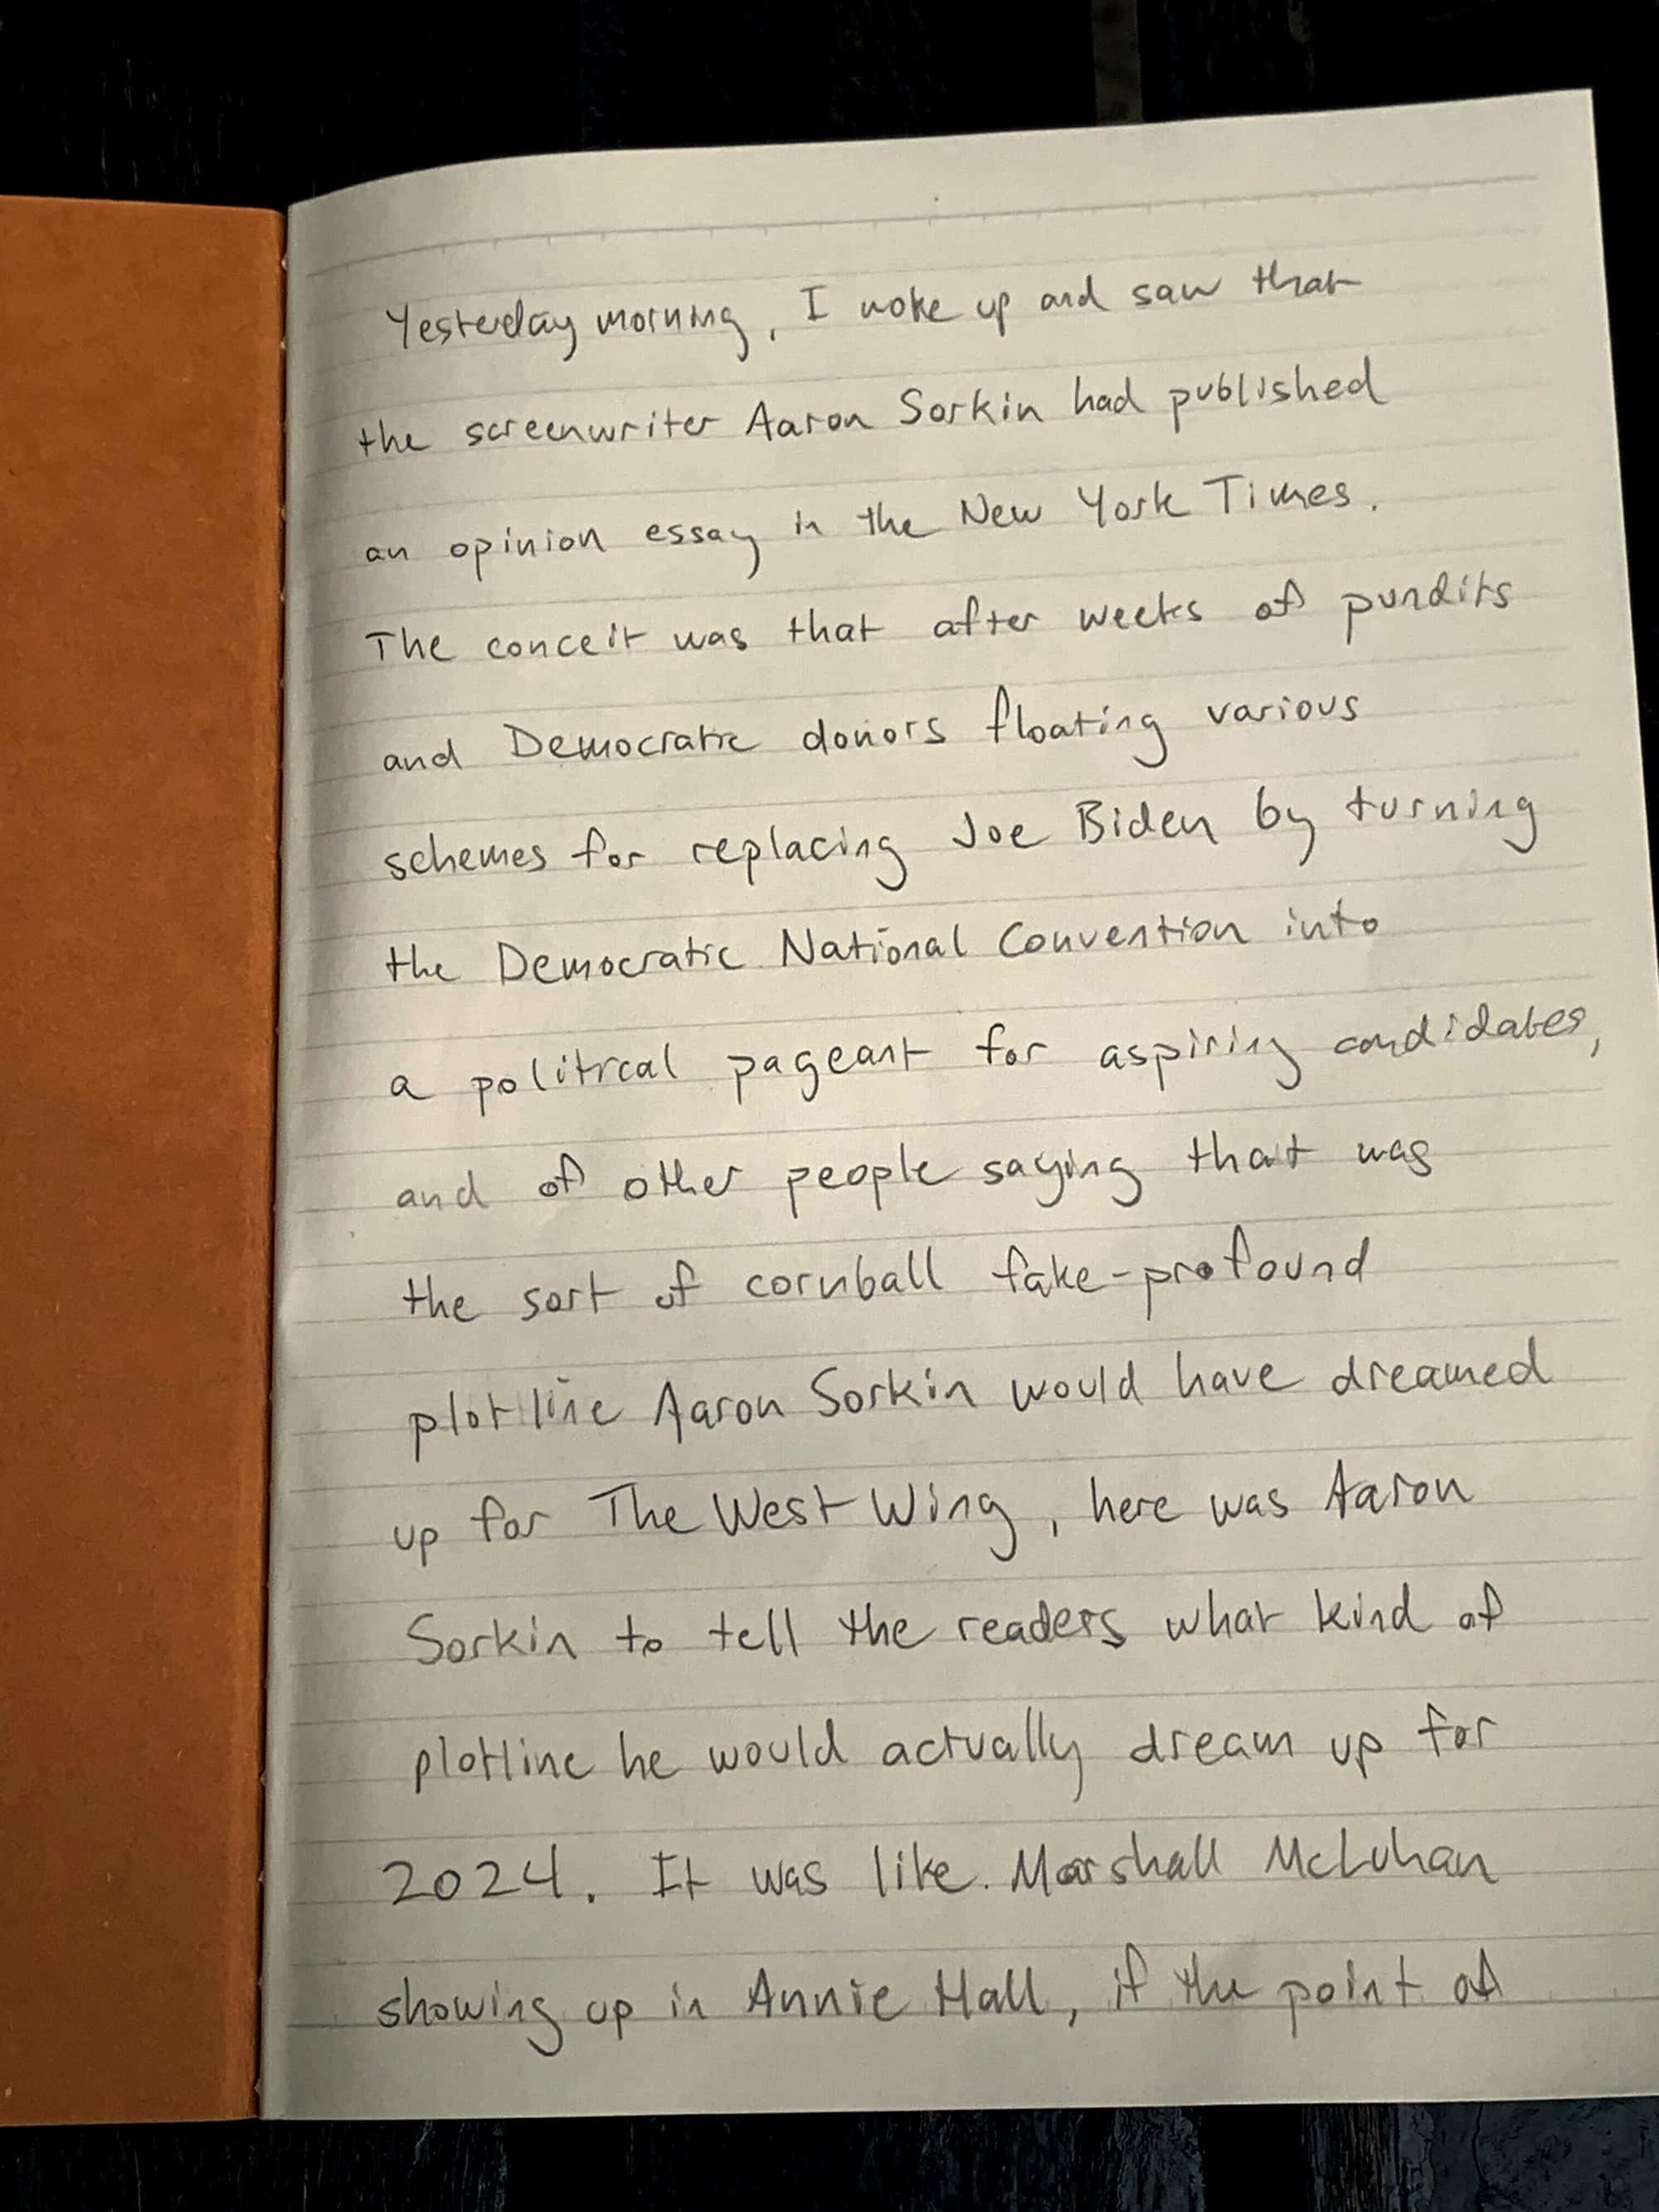 Yesterday morning, I woke up and saw that
the screenwriter Aaron Sorkin had published
an opinion essay in the New York Times.
The conceit was that after weeks of pundits
and Democratic donors floating various
schemes for replacing Joe Biden by turning
the Democratic National Convention into
a political pageant for aspiring candidates,
and of other people saying that was
the sort of cornball fake-profound
plotline Aaron Sorkin would have dreamed
up for The West Wing, here was Aaron
Sorkin to tell the readers what kind of
plotline he would actually dream up for
2024. It was like Marshall McLuhan
showing up in Annie Hall, if the point of